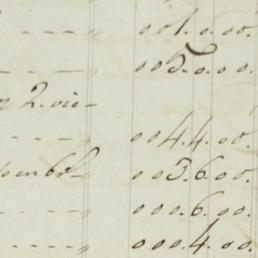 --- " 001.0.00.
--- " 005.0.0.0.
2. vie-
--- " 004.4.00.
" 003.6.00.
---- " 000.6.00.
---- " 000.4.00.